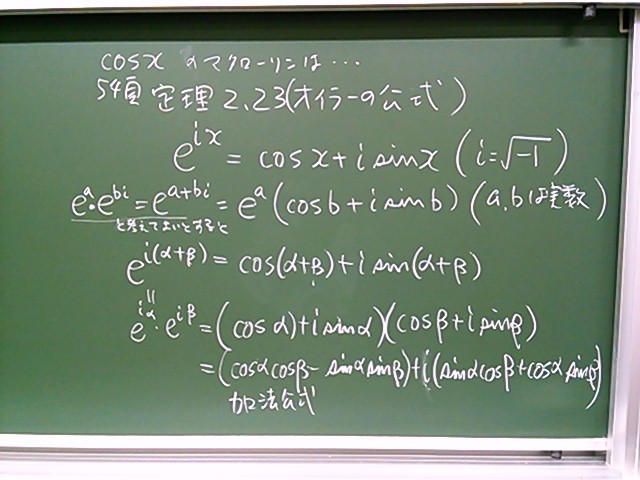 cosx のマクローリンは…
54頁 定理2.23(オイラーの公式)
e^{ix} = cosx+i sinx (i=√-1)
e^a・e^{bi}=e^{a+bi}=e^a(cosb+i sinb) (a,bは実数)
と考えてよいとすると
e^{i(α+β)}=cos(α+β)+i sin(α+β)
||
e^{iα}・e^{iβ}=(cosα)+i sinα)(cosβ+i sinβ)
=(cosαcosβ-sinαsinβ)+i(sinαcosβ+cosαsinβ)
加法公式